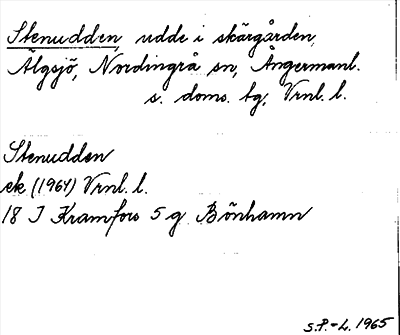 Stenudden, udde i skärgården,
Älgsjö, Nordingrå sn, Ångermanl.
s. doms. tg, Vrnl. l.
Stenudden
ek (1964) Vrnl. l.
18 I Kramfors 5 g Bönhamn
S.P.-L. 1965